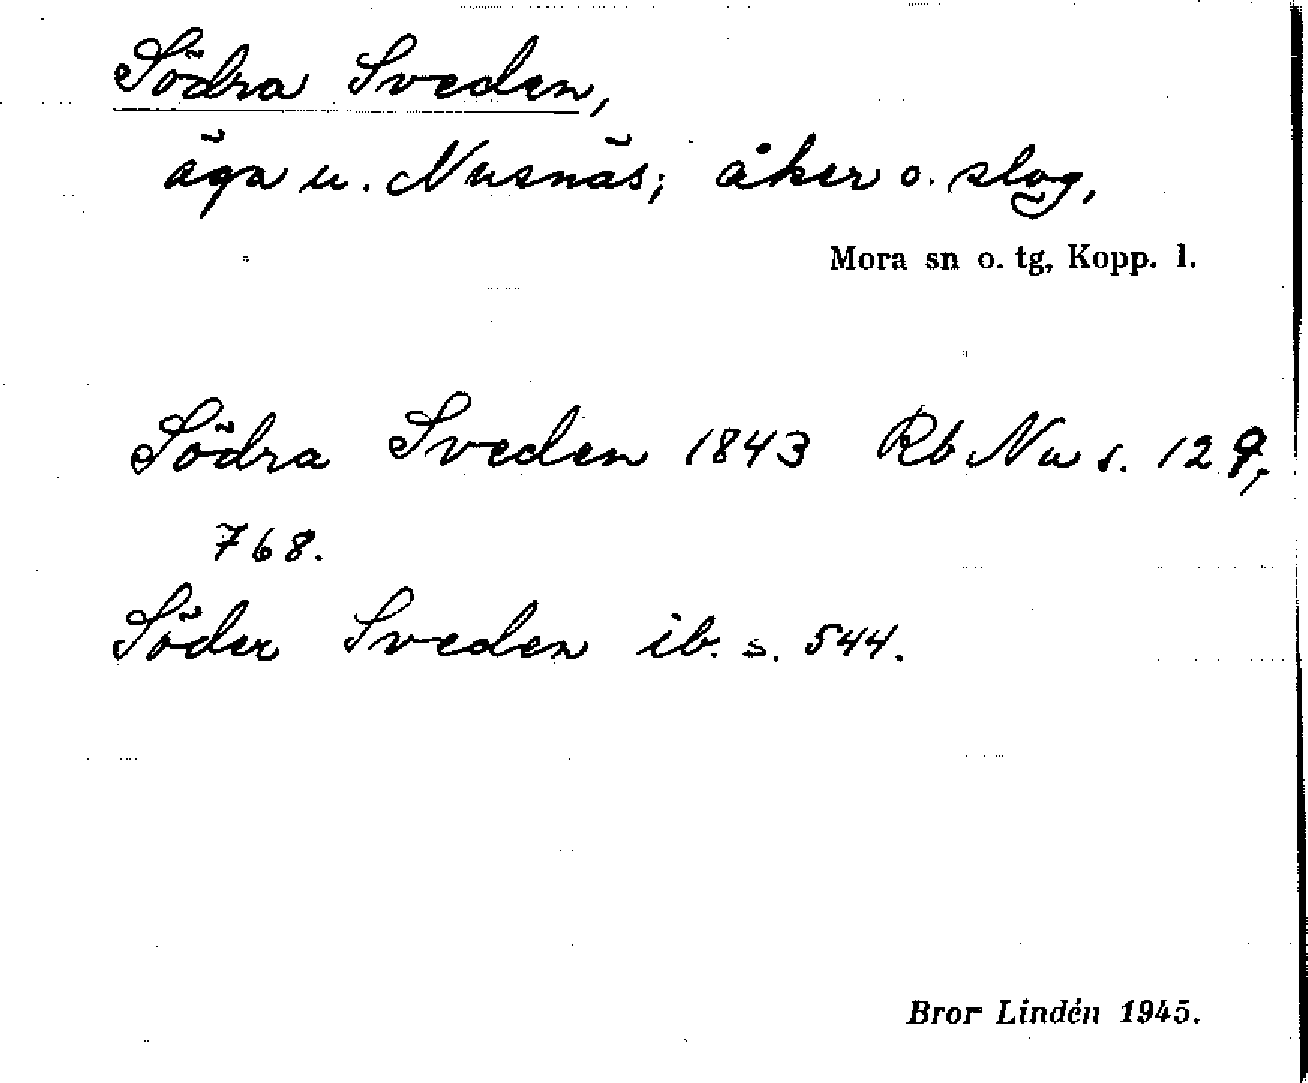 Södra Sveden,
äga u. Nusnäs; åker o. slog,
Mora sn o. tg, Kopp. l.
Södra Sveden 1843 Rb Nu s. 129,
768.
Söder Sveden ib. s. 544.
Bror Lindén 1945.